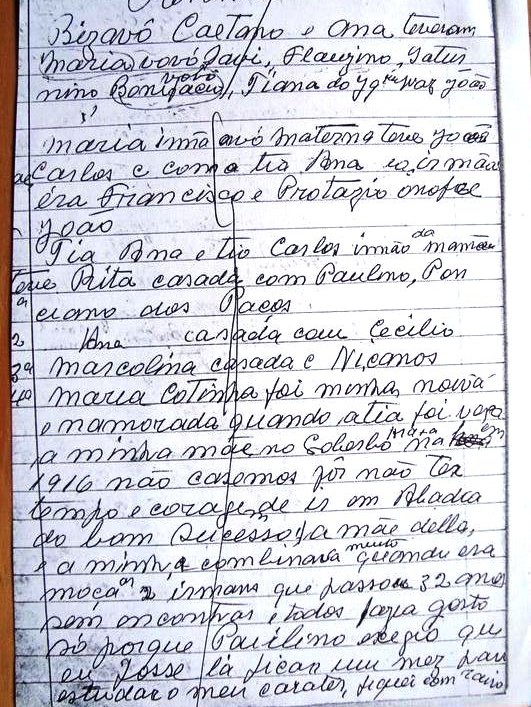 Bizavô Caetano e Ana tiveram
Maria vovó Davi, Flauzino, Satur
nino Bonifacio, vovô Tiana do João
Maria irmã avó materna teve João
Carlos e com a tia Ana e irmão
éra Francisco e Protazio Onofre
João
Tia Ana e tio Carlos irmão da mamãe
teve Rita casada com Paulino, Pon
ciano dos Paços
2 Ana casada com Cecilio
3ª Marcolina casada c Nicanos
4ª Maria Cotinha foi minha noiva
e namorada quando a tia foi
a minha mãe no Soberbo para em
1916 não casemos pôr não ter
tempo e corage, de ir em Abadia
do bom Sucésso, a mãe della,
e a minha, combinava muito quando era
moça as 2 irmans que passou 32 anos
sem encontrar e todos fazia gosto
só porque Paulino exegio que
eu fosse lá ficar um mez para
estudar o meu carater, fiquei com raiva